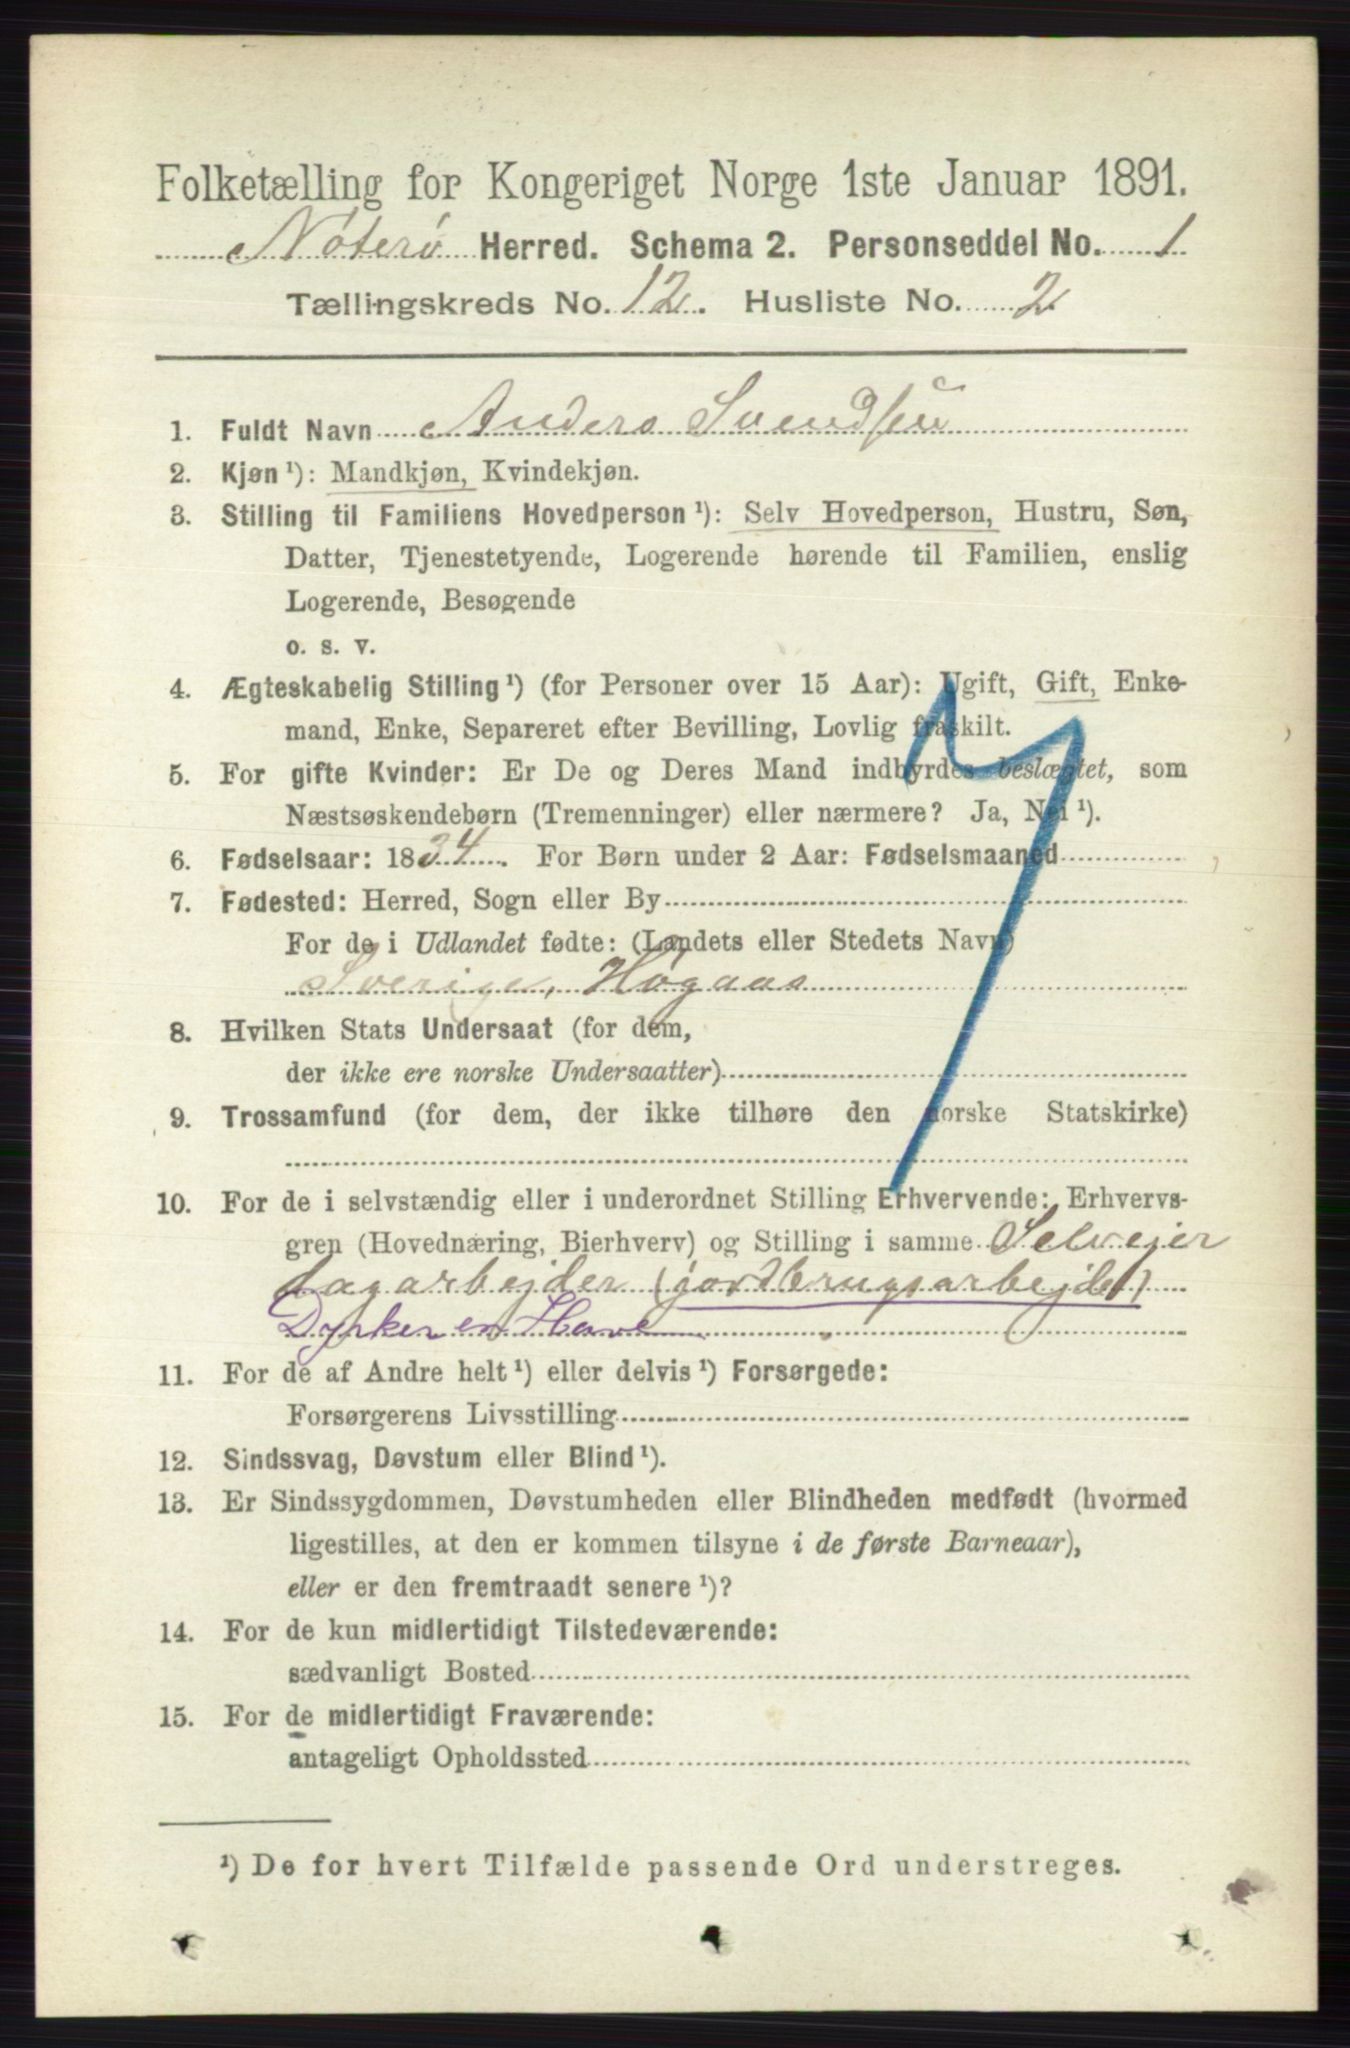 Folketælling for Kongeriget Norge 1ste Januar 1891.
Nøterø Herred. Schema 2. Personseddel No. 1
Tællingskreds No. 12. Husliste No. 2
1. Fuldt Navn Anders Svendsen
2. Kjøn ¹): Mandkjøn, Kvindekjøn.
3. Stilling til Familiens Hovedperson ¹): Selv Hovedperson, Hustru, Søn,
Datter, Tjenestetyende, Logerende hørende til Familien, enslig
Logerende, Besøgende
o. s. v.
4. Ægteskabelig Stilling ¹) (for Personer over 15 Aar): Ugift, Gift, Enke-
mand, Enke, Separeret efter Bevilling, Lovlig fraskilt.
5. For gifte Kvinder: Er De og Deres Mand indbyrdes beslægtet, som
Næstsøskendebørn (Tremenninger) eller nærmere? Ja, Nei ¹).
6. Fødselsaar: 1834. For Børn under 2 Aar: Fødselsmaaned
7. Fødested: Herred, Sogn eller By
For de i Udlandet fødte: (Landets eller Stedets Navn)
Sverige, Høgaas
8. Hvilken Stats Undersaat (for dem,
der ikke ere norske Undersaatter)
9. Trossamfund (for dem, der ikke tilhøre den norske Statskirke)
10. For de i selvstændig eller i underordnet Stilling Erhvervende: Erhvervs-
gren (Hovednæring, Bierhverv) og Stilling i samme Selvejer
dagarbejder (jordbrugsarbejde)
Dyrker en Have
11. For de af Andre helt ¹) eller delvis ¹) Forsørgede:
Forsørgerens Livsstilling
12. Sindssvag, Døvstum eller Blind ¹).
13. Er Sindssygdommen, Døvstumheden eller Blindheden medfødt (hvormed
ligestilles, at den er kommen tilsyne i de første Barneaar),
eller er den fremtraadt senere ¹)?
14. For de kun midlertidigt Tilstedeværende:
sædvanligt Bosted
15. For de midlertidigt Fraværende:
antageligt Opholdssted
¹) De for hvert Tilfælde passende Ord understreges.